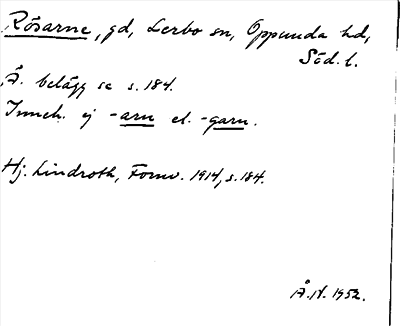 Rösarne, gd, Lerbo sn, Oppunda hd,
Söd. l.
Ä. belägg se s. 184.
Inneh. ej -arn el. -garn.
Hj. Lindroth, Fornv. 1914, s. 184.
Å.N. 1952.